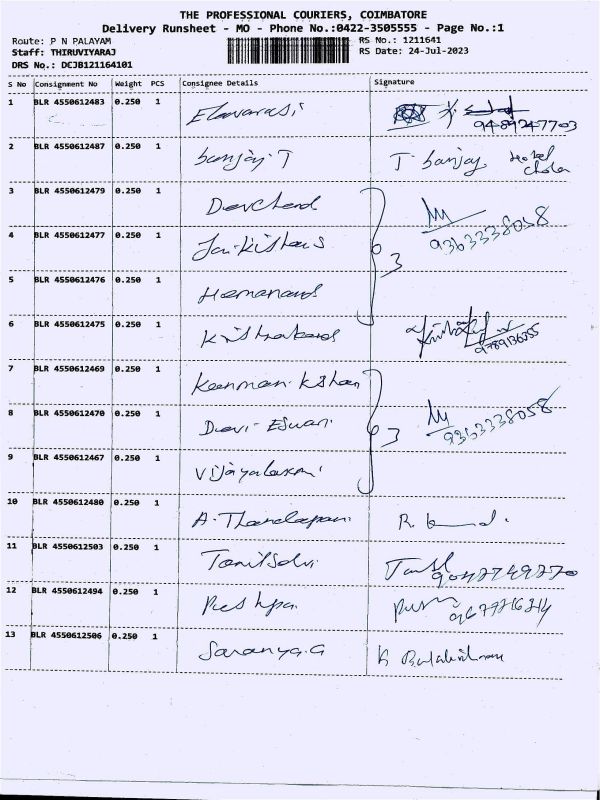 THE PROFESSIONAL COURIERS, COIMBATORE
Delivery Runsheet - MO - Phone No.:0422-3505555 - Page No.:1
Route: P N PALAYAM RS No.: 1211641
Staff: THIRUVIYARAJ RS Date: 24-Jul-2023
DRS No.: DCJB121164101
S No Consignment No Weight PCS Consignee Details Signature
1 BLR 4550612483 0.250 1 Elavarasi
9489247703
2 BLR 4550612487 0.250 1 Sanjay.T T. Sanjay Hotel
Chola
3 BLR 4550612479 0.250 1 Devchand
9363338058
4 BLR 4550612477 0.250 1 Jai-Kishans 3
5 BLR 4550612476 0.250 1 Hemanand
6 BLR 4550612475 0.250 1
7 BLR 4550612469 0.250 1
8 BLR 4550612470 0.250 1 Devi-Eswari 3
9363338058
9 BLR 4550612467 0.250 1 Vijayalaxmi
10 BLR 4550612480 0.250 1 A. Thandapani
11 BLR 4550612503 0.250 1 Tamilselvi
12 BLR 4550612494 0.250 1 Pushpa
13 BLR 4550612506 0.250 1 Saranya.G K Balakrishnan